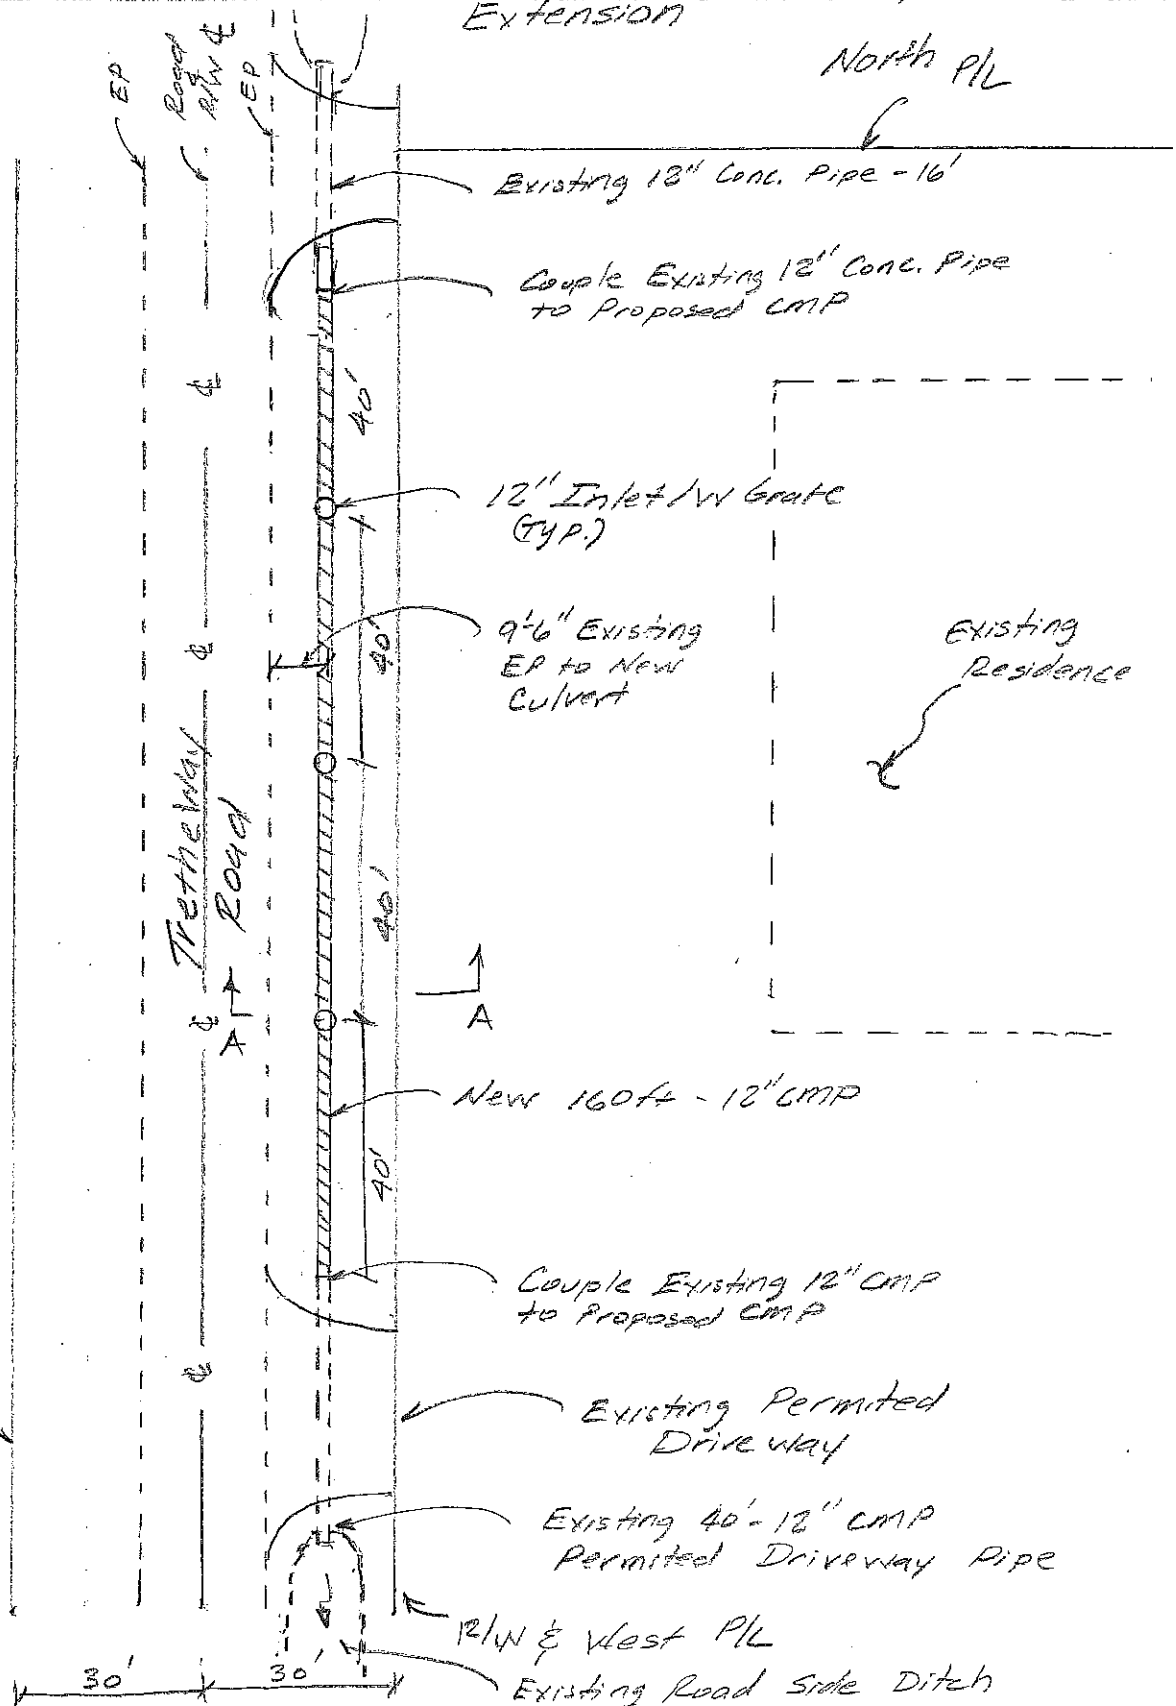 Extension
North P/L
EP
Road
&
R/W ℄
EP
Existing 12" Conc. Pipe - 16'
Couple Existing 12" Conc. Pipe
to Proposed CMP
40'
℄
12" Inlet/w Grate
(Typ.)
9'-6" Existing
EP to New
Culvert
40'
℄
Existing
Residence
Tretheway
Road
40'
℄
A
A
New 160ft - 12" CMP
40'
Couple Existing 12" CMP
to Proposed CMP
℄
Existing Permited
Driveway
Existing 40'- 12" CMP
Permited Driveway Pipe
R/W & West P/L
30'
30'
Existing Road Side Ditch